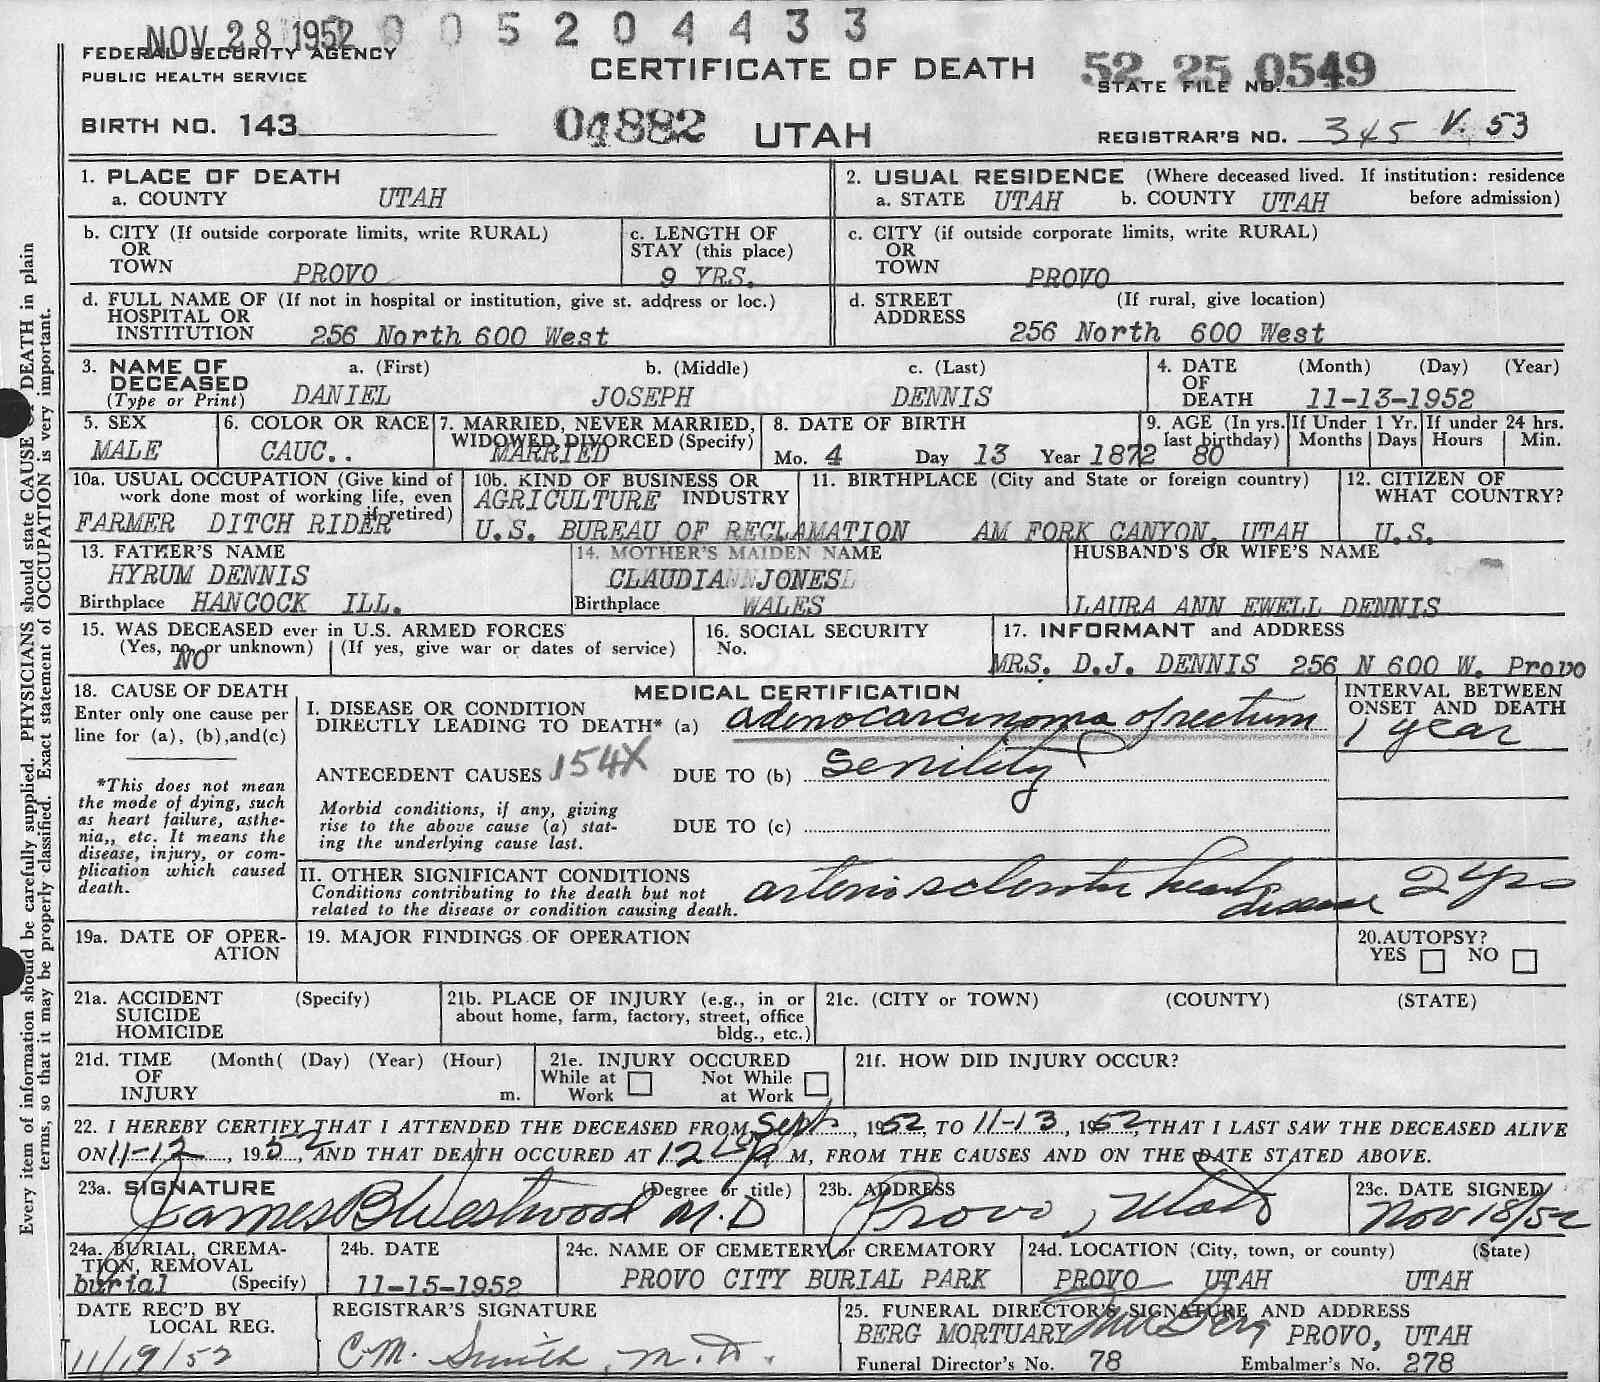 NOV 28 1952 0 0 5 2 0 4 4 3 3
FEDERAL SECURITY AGENCY
PUBLIC HEALTH SERVICE
CERTIFICATE OF DEATH
52 25 0549
STATE FILE NO.
BIRTH NO. 143
04882 UTAH
REGISTRAR'S NO. 345 V. 53
1. PLACE OF DEATH
a. COUNTY UTAH
2. USUAL RESIDENCE (Where deceased lived. If institution: residence
a. STATE UTAH b. COUNTY UTAH before admission)
b. CITY (If outside corporate limits, write RURAL)
OR
TOWN PROVO
c. LENGTH OF
STAY (this place)
9 YRS.
c. CITY (if outside corporate limits, write RURAL)
OR
TOWN PROVO
d. FULL NAME OF (If not in hospital or institution, give st. address or loc.)
HOSPITAL OR
INSTITUTION 256 North 600 West
d. STREET (If rural, give location)
ADDRESS
256 North 600 West
3. NAME OF a. (First) b. (Middle) c. (Last)
DECEASED
(Type or Print) DANIEL JOSEPH DENNIS
4. DATE (Month) (Day) (Year)
OF
DEATH 11-13-1952
5. SEX
MALE
6. COLOR OR RACE
CAUC..
7. MARRIED, NEVER MARRIED,
WIDOWED, DIVORCED (Specify)
MARRIED
8. DATE OF BIRTH
Mo. 4 Day 13 Year 1872
9. AGE (In yrs. If Under 1 Yr. If under 24 hrs.
last birthday) Months Days Hours Min.
80
10a. USUAL OCCUPATION (Give kind of
work done most of working life, even
if retired)
FARMER DITCH RIDER
10b. KIND OF BUSINESS OR
AGRICULTURE INDUSTRY
U.S. BUREAU OF RECLAMATION
11. BIRTHPLACE (City and State or foreign country)
AM FORK CANYON, UTAH
12. CITIZEN OF
WHAT COUNTRY?
U.S.
13. FATHER'S NAME
HYRUM DENNIS
Birthplace HANCOCK ILL.
14. MOTHER'S MAIDEN NAME
CLAUDIA JONES
Birthplace WALES
HUSBAND'S OR WIFE'S NAME
LAURA ANN EWELL DENNIS
15. WAS DECEASED ever in U.S. ARMED FORCES
(Yes, no, or unknown) (If yes, give war or dates of service)
NO
16. SOCIAL SECURITY
No.
17. INFORMANT and ADDRESS
MRS. D.J. DENNIS 256 N 600 W. Provo
18. CAUSE OF DEATH
Enter only one cause per
line for (a), (b),and(c)
*This does not mean
the mode of dying, such
as heart failure, asthe-
nia,, etc. It means the
disease, injury, or com-
plication which caused
death.
MEDICAL CERTIFICATION
I. DISEASE OR CONDITION
DIRECTLY LEADING TO DEATH* (a) adenocarcinoma of rectum
ANTECEDENT CAUSES 154X DUE TO (b) Senility
Morbid conditions, if any, giving
rise to the above cause (a) stat-
ing the underlying cause last.
DUE TO (c)
INTERVAL BETWEEN
ONSET AND DEATH
1 year
II. OTHER SIGNIFICANT CONDITIONS
Conditions contributing to the death but not
related to the disease or condition causing death.
arteriosclerotic heart
disease 2 yrs
19a. DATE OF OPER-
ATION
19. MAJOR FINDINGS OF OPERATION
20.AUTOPSY?
YES NO
21a. ACCIDENT (Specify)
SUICIDE
HOMICIDE
21b. PLACE OF INJURY (e.g., in or
about home, farm, factory, street, office
bldg., etc.)
21c. (CITY or TOWN) (COUNTY) (STATE)
21d. TIME (Month( (Day) (Year) (Hour)
OF
INJURY m.
21e. INJURY OCCURED
While at Not While
Work at Work
21f. HOW DID INJURY OCCUR?
22. I HEREBY CERTIFY THAT I ATTENDED THE DECEASED FROM Sept, 1952, TO 11-13, 1952, THAT I LAST SAW THE DECEASED ALIVE
ON 11-12, 1952, AND THAT DEATH OCCURED AT 12 M, FROM THE CAUSES AND ON THE DATE STATED ABOVE.
23a. SIGNATURE (Degree or title)
James B Westwood M.D
23b. ADDRESS
Provo, Utah
23c. DATE SIGNED
Nov 18/52
24a. BURIAL, CREMA-
TION, REMOVAL
burial (Specify)
24b. DATE
11-15-1952
24c. NAME OF CEMETERY or CREMATORY
PROVO CITY BURIAL PARK
24d. LOCATION (City, town, or county) (State)
PROVO UTAH UTAH
DATE REC'D BY
LOCAL REG.
11/19/52
REGISTRAR'S SIGNATURE
C.M. Smith, M.D.
25. FUNERAL DIRECTOR'S SIGNATURE AND ADDRESS
BERG MORTUARY Berg PROVO, UTAH
Funeral Director's No. 78 Embalmer's No. 278
Every item of information should be carefully supplied. PHYSICIANS should state CAUSE OF DEATH in plain
terms, so that it may be properly classified. Exact statement of OCCUPATION is very important.